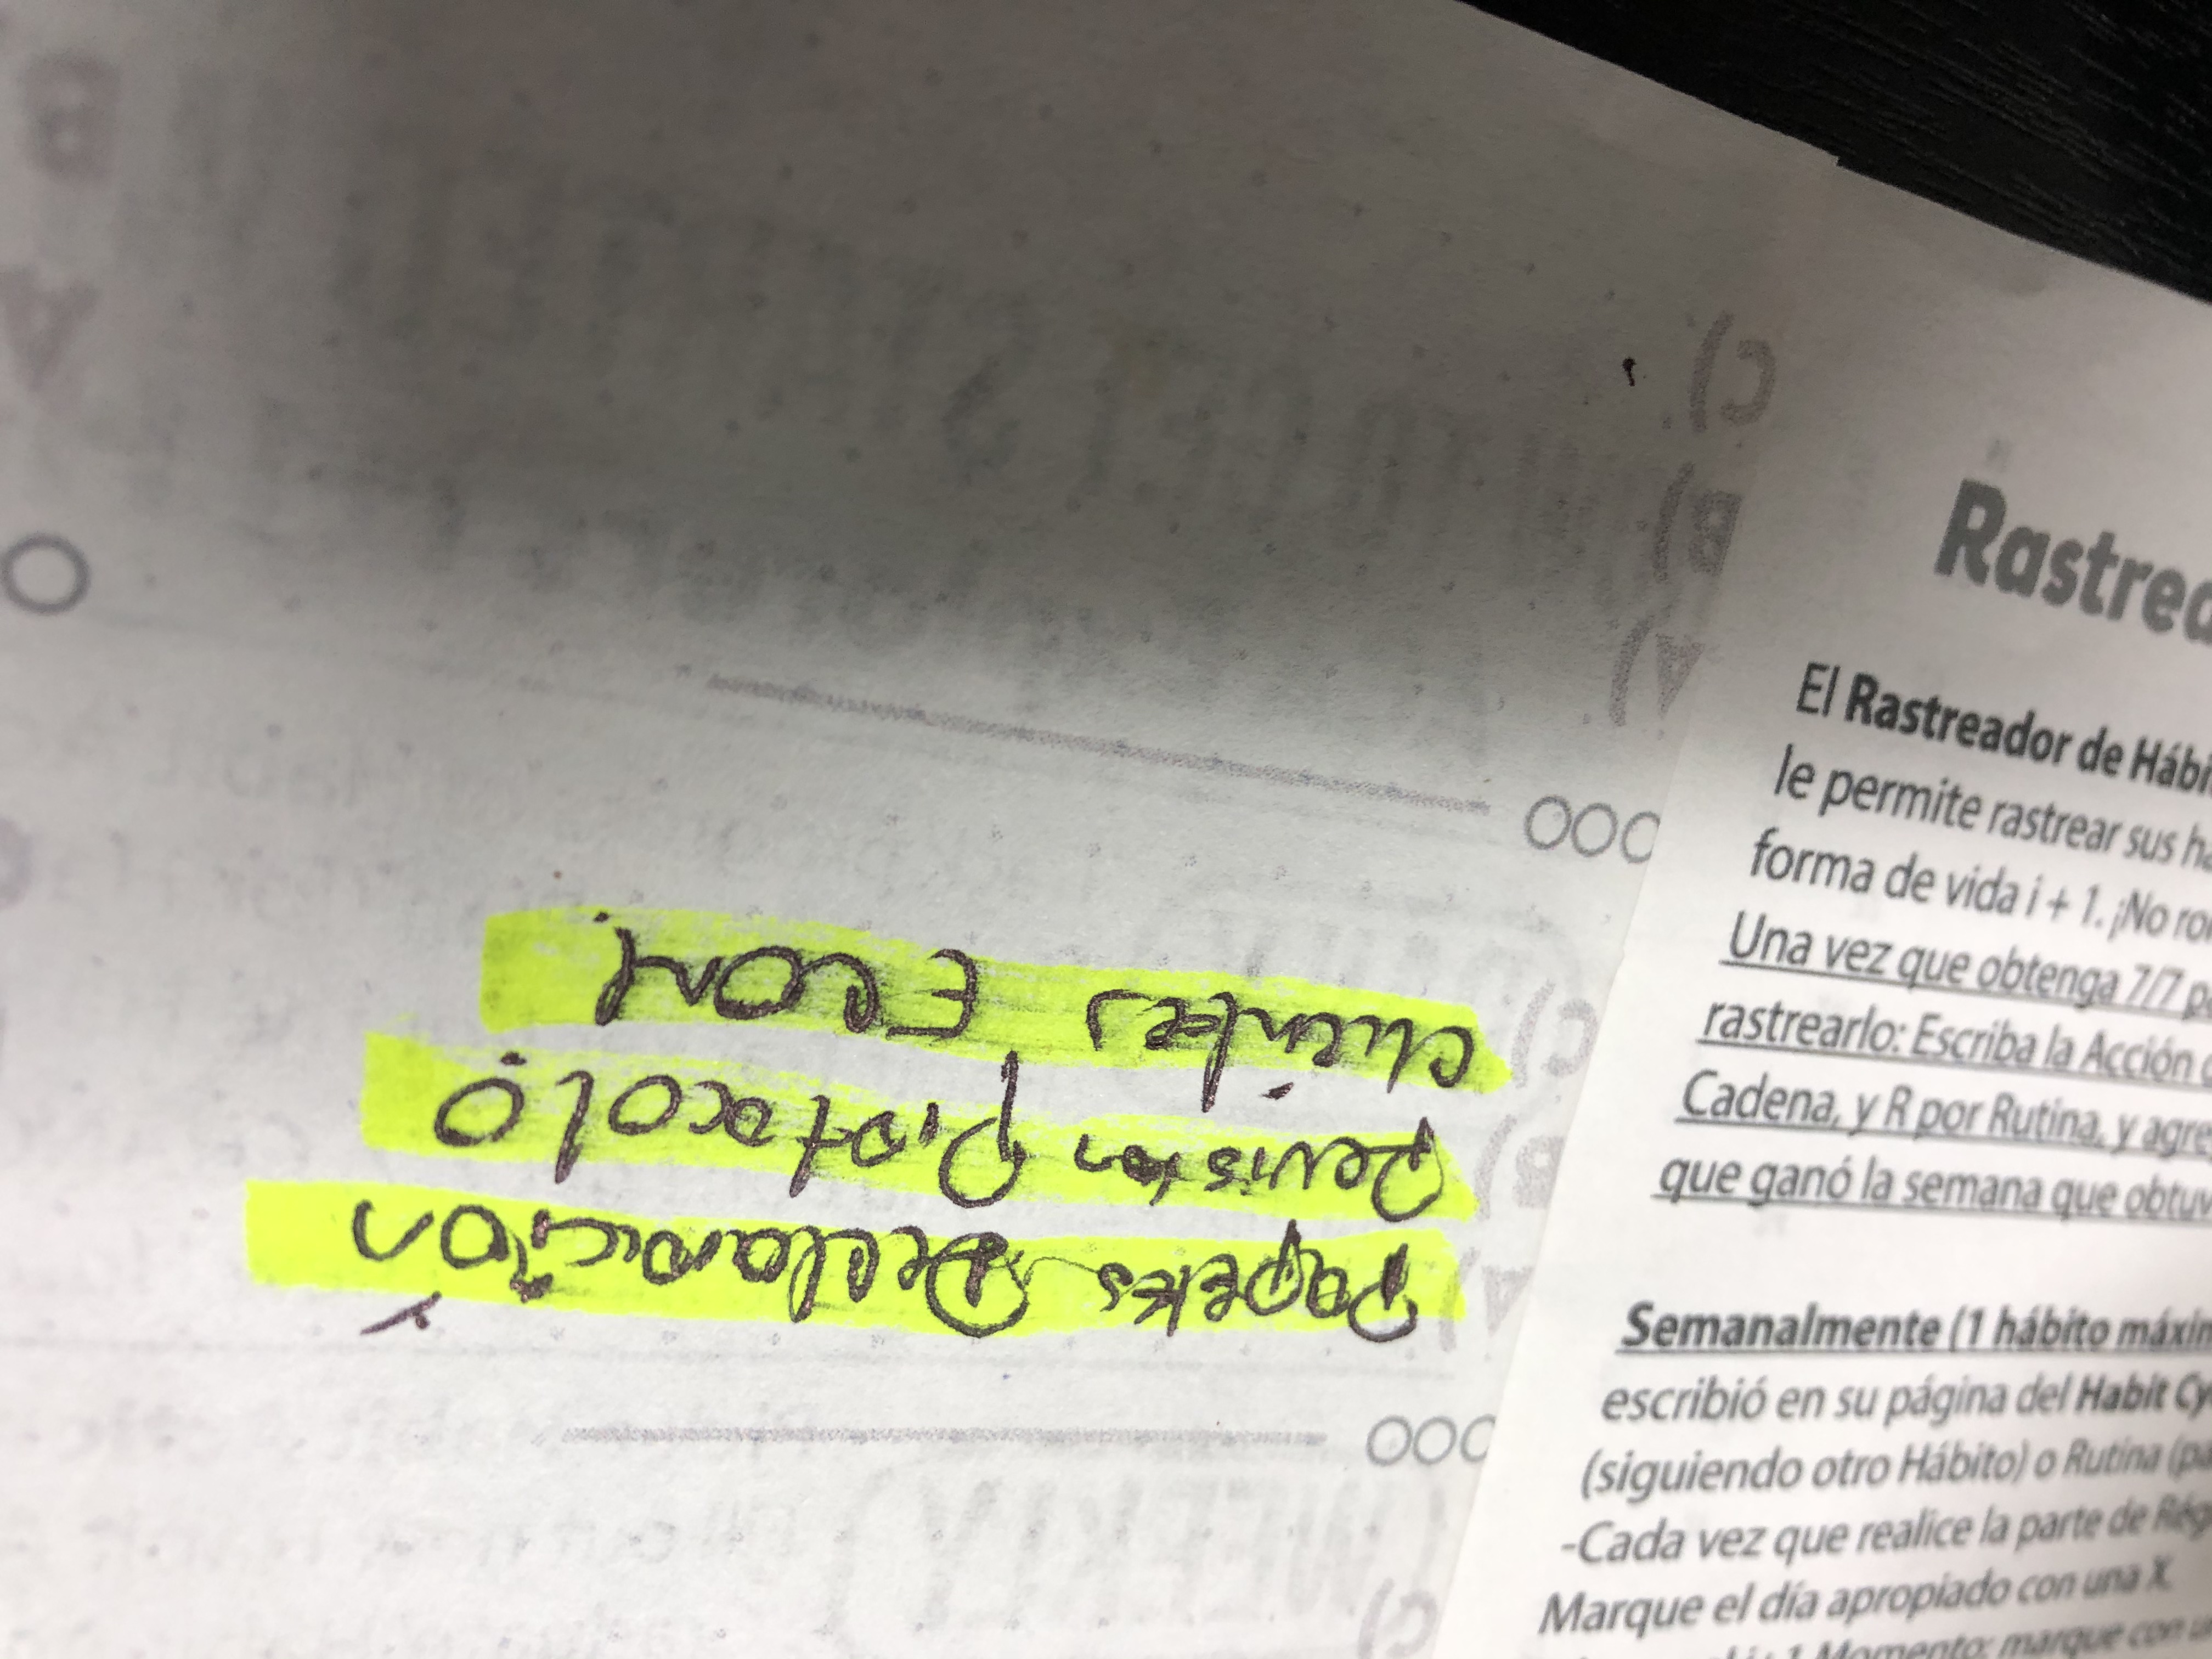 A) Papeles Declaración
B) Revision Protocolo
C) clientes Ecom.
A)
B)
C)
Rastread
El Rastreador de Hábi
le permite rastrear sus há
forma de vida i + 1. ¡No ro
Una vez que obtenga 7/7 p
rastrearlo: Escriba la Acción
Cadena, y R por Rutina, y agre
que ganó la semana que obtuv
Semanalmente (1 hábito máxim
escribió en su página del Habit Cy
(siguiendo otro Hábito) o Rutina (pa
-Cada vez que realice la parte de Rég
Marque el día apropiado con una X.
1 Momento: marque con un